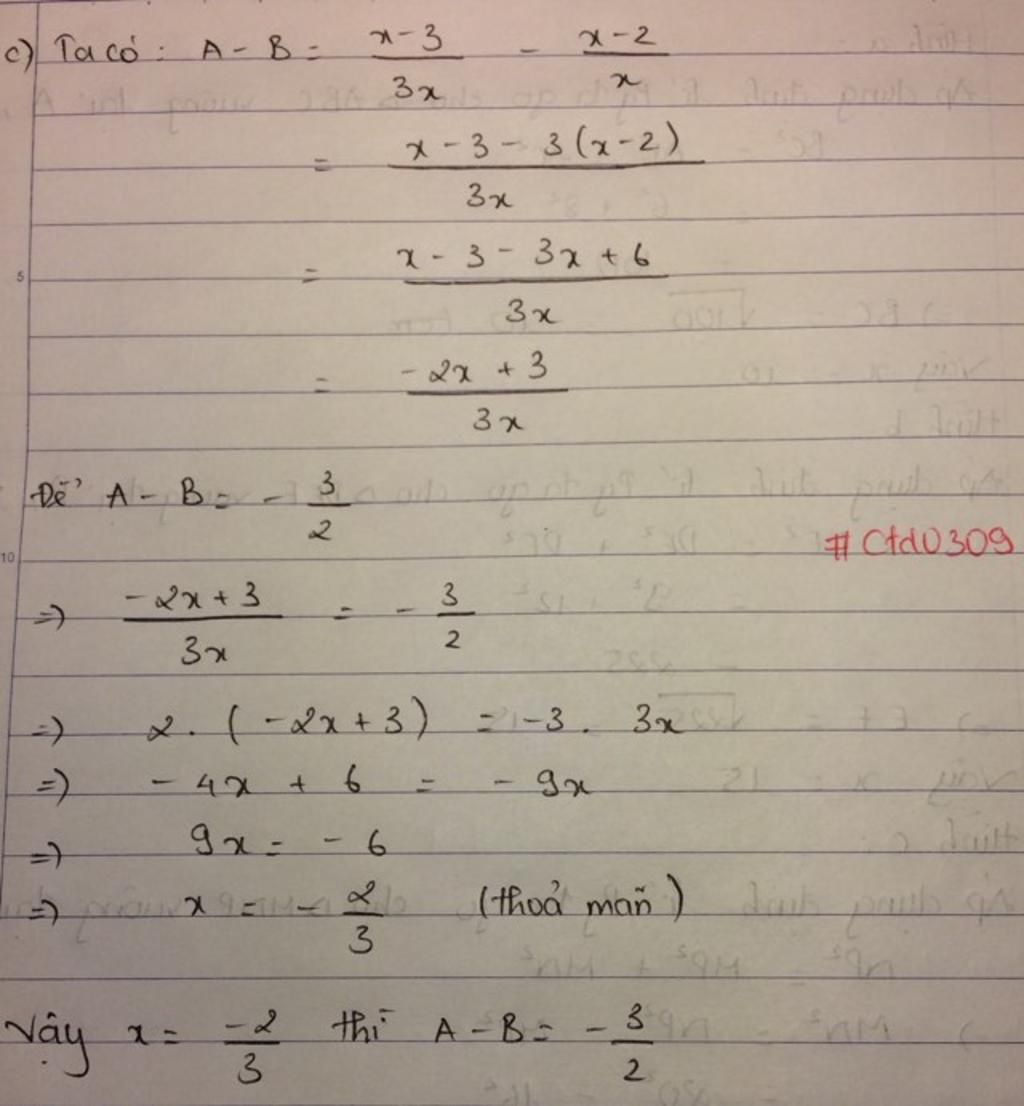 c) Ta có: A - B = \frac{x-3}{3x} - \frac{x-2}{x}
= \frac{x-3-3(x-2)}{3x}
= \frac{x-3-3x+6}{3x}
= \frac{-2x+3}{3x}
Để A - B = -\frac{3}{2}
#Ctd0309
=> \frac{-2x+3}{3x} = -\frac{3}{2}
=> 2. (-2x+3) = -3. 3x
=> -4x + 6 = -9x
=> 9x = -6
=> x = -\frac{2}{3} (thoả mãn)
Vậy x = \frac{-2}{3} thì A - B = -\frac{3}{2}
5
10